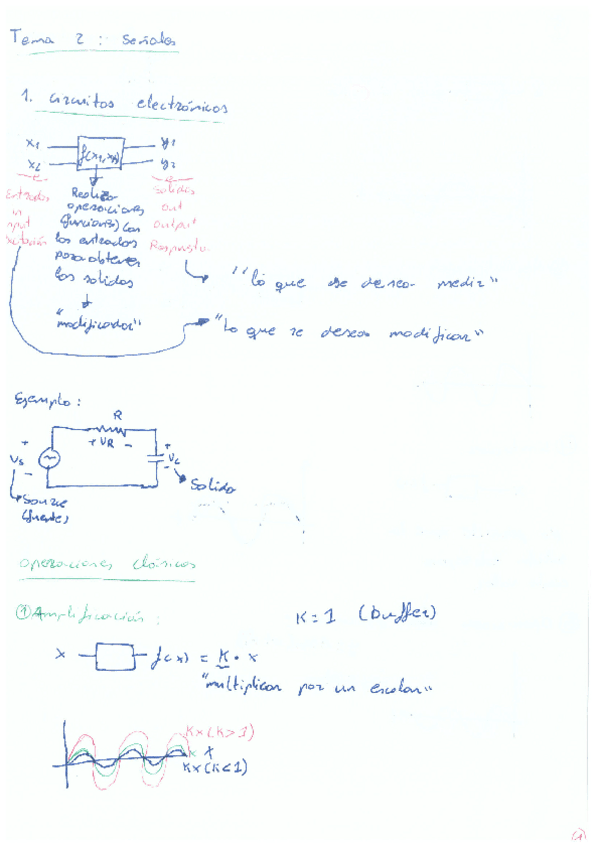 Tema 2 : Señales
1. circuitos electrónicos
x1 y1
f(x1,x2)
x2 y2
Entradas Realiza Salidas
in operaciones out
input (funciones) con output
excitación las entradas Respuesta
para obtener
las salidas
"lo que se desea medir"
"modificador"
"Lo que se desea modificar"
Ejemplo:
R
+ VR -
+ +
Vs Vc
- -
Salida
Source
(fuente)
operaciones clásicas
① Amplificación: K=1 (buffer)
x f(x) = K · x
"multiplicar por un escalar"
Kx (K>1)
x
Kx (K<1)